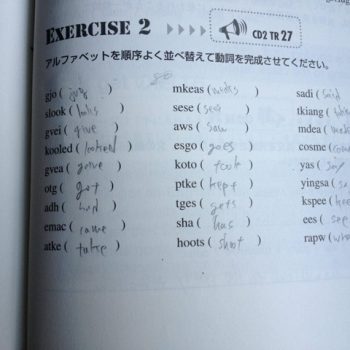 EXERCISE 2 CD2 TR 27
アルファベットを順序よく並べ替えて動詞を完成させてください。
gjo ( ) mkeas ( ) sadi ( said
slook ( looks ) sese ( ) tkiang (
gvei ( give ) aws ( saw ) mdea (
kooled ( looked ) esgo ( goes ) cosme (
gvea ( gave ) koto ( took ) yas ( say
otg ( got ) ptke ( kept ) yingsa (
adh ( had ) tges ( gets ) kspee (
emac ( came ) sha ( has ) ees ( see
atke ( take ) hoots ( shoot ) rapw (